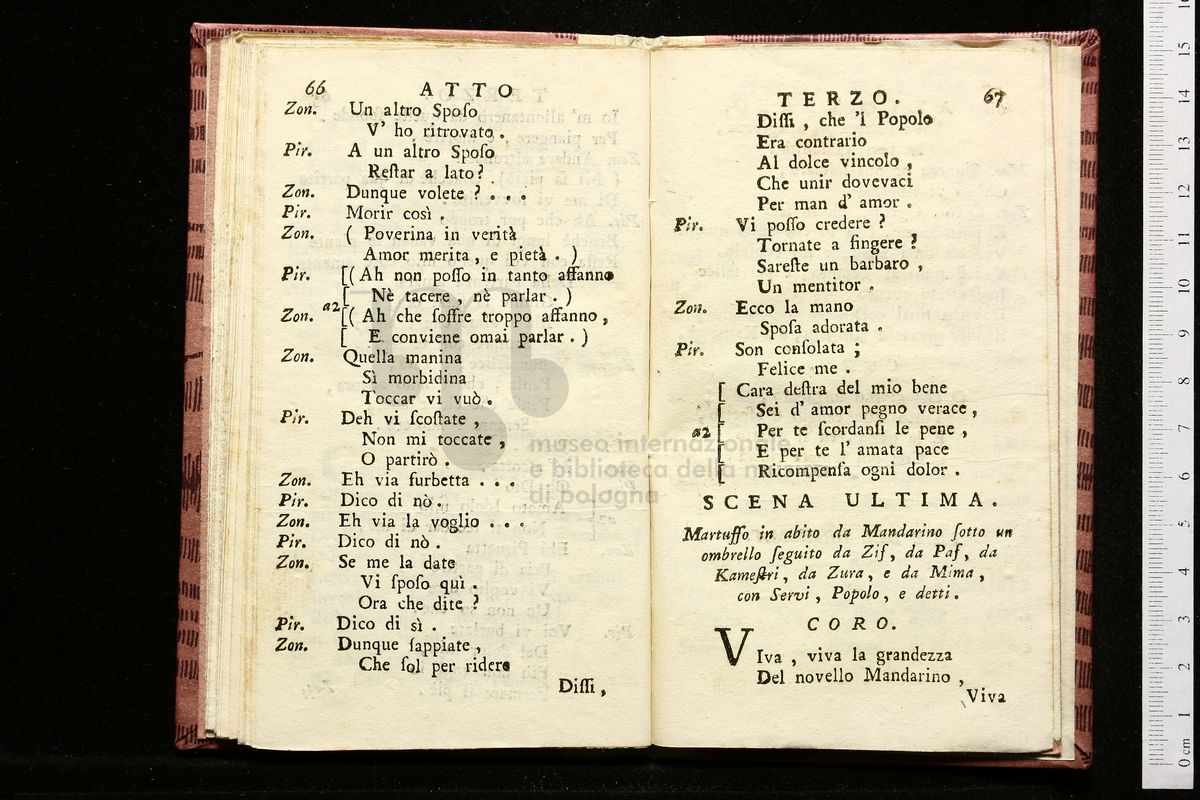 66 ATTO
Zon. Un altro Spoſo
V' ho ritrovato.
Pir. A un altro Spoſo
Reſtar a lato?
Zon. Dunque volete? . . .
Pir. Morir così.
Zon. ( Poverina in verità
Amor merita, e pietà. )
Pir. [( Ah non poſſo in tanto affanno
[ Nè tacere, nè parlar. )
a2
Zon. [( Ah che ſoffre troppo affanno,
[ E conviene omai parlar. )
Zon. Quella manina
Sì morbidina
Toccar vi vuò.
Pir. Deh vi ſcoſtate,
Non mi toccate,
O partirò.
Zon. Eh via furbetta . . .
Pir. Dico di nò.
Zon. Eh via la voglio . . .
Pir. Dico di nò.
Zon. Se me la date
Vi ſpoſo quì.
Ora che dite?
Pir. Dico di sì.
Zon. Dunque ſappiate,
Che ſol per ridere
Diſſi,
TERZO. 67
Diſſi, che 'l Popolo
Era contrario
Al dolce vincolo,
Che unir dovevaci
Per man d' amor.
Pir. Vi poſſo credere?
Tornate a fingere?
Sareſte un barbaro,
Un mentitor.
Zon. Ecco la mano
Spoſa adorata.
Pir. Son conſolata;
Felice me.
[ Cara deſtra del mio bene
[ Sei d' amor pegno verace,
a2 [ Per te ſcordanſi le pene,
[ E per te l' amata pace
[ Ricompenſa ogni dolor.
SCENA ULTIMA.
Martuffo in abito da Mandarino ſotto un
ombrello ſeguito da Zif, da Paf, da
Kameſtri, da Zura, e da Mima,
con Servi, Popolo, e detti.
CORO.
VIva, viva la grandezza
Del novello Mandarino,
Viva
museo internazionale
e biblioteca della m
di bologna
0 cm 1 2 3 4 5 6 7 8 9 10 11 12 13 14 15